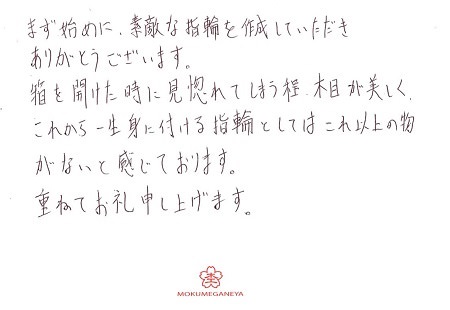 まず始めに、素敵な指輪を作成していただき
ありがとうございます。
箱を開けた時に見惚れてしまう程、木目が美しく、
これから一生身に付ける指輪としてはこれ以上の物
がないと感じております。
重ねてお礼申し上げます。
MOKUMEGANEYA